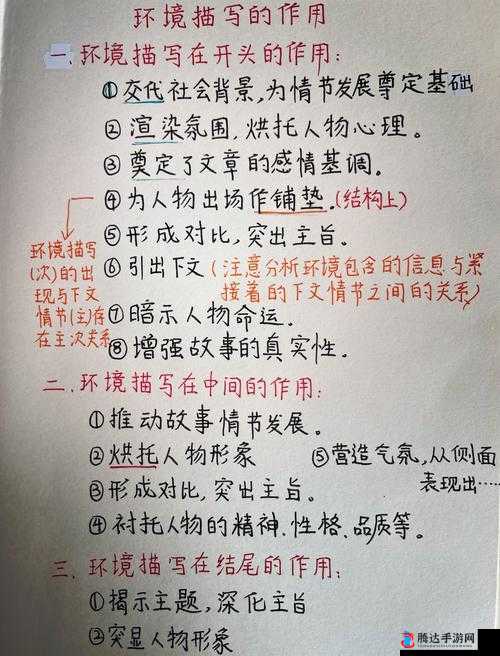 环境描写的作用
一、环境描写在开头的作用:
①交代社会背景,为情节发展尊定基础
②渲染氛围,烘托人物心理。
③奠定了文章的感情基调。
④为人物出场作铺垫.(结构上)
⑤形成对比,突出主旨。
⑥引出下文(注意分析环境包含的信息与紧
接着的下文情节之间的关系)
环境描写
(次)的出
现与下文
情节(主)存
在主次关系
⑦暗示人物命运.
⑧增强故事的真实性.
二.环境描写在中间的作用:
①推动故事情节发展。
②烘托人物形象
③形成对比,突出主旨。
④衬托人物的精神、性格、品质等。
⑤营造气氛,从侧面
表现出……
三、环境描写在结尾的作用;
①揭示主题,深化主旨
②突显人物形象
腾达手游网